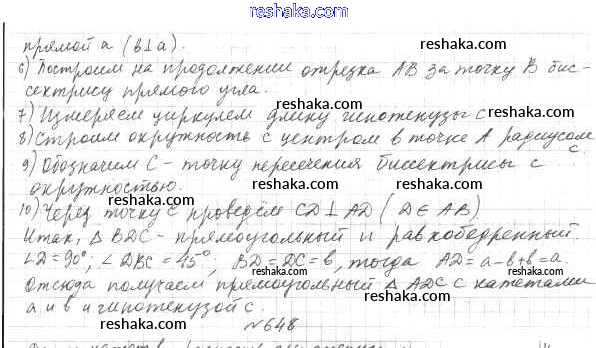 reshaka.com
прямой a (b⊥a).
reshaka.com
6) Построим на продолжении отрезка AB за точку B бис-
сектрису прямого угла.
reshaka.com
7) Измеряем циркулем длину гипотенузы c.
reshaka.com
8) Строим окружность с центром в точке A радиусом
c.
reshaka.com
9) Обозначим C - точку пересечения биссектрисы с
окружностью.
reshaka.com
10) Через точку C проведём CD⊥AD (D∈AB).
Итак, △BDC - прямоугольный и равнобедренный.
reshaka.com
∠D=90°; ∠DBC=45°; BD=DC=b, тогда AD=a-b+b=a.
Отсюда получаем прямоугольный △ADC с катетами
a и b и гипотенузой c.
reshaka.com
reshaka.com
№648